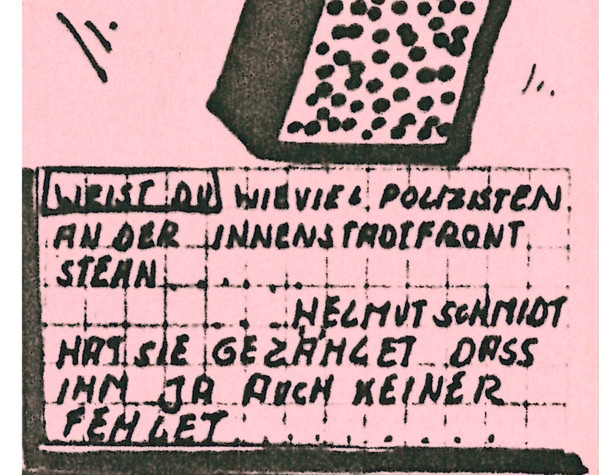 WEIST DU WIEVIEL POLIZISTEN
AN DER INNENSTADTFRONT
STEHN.......
...HELMUT SCHMIDT
HAT SIE GEZÄHLET DASS
IHM JA AUCH KEINER
FEHLET.........